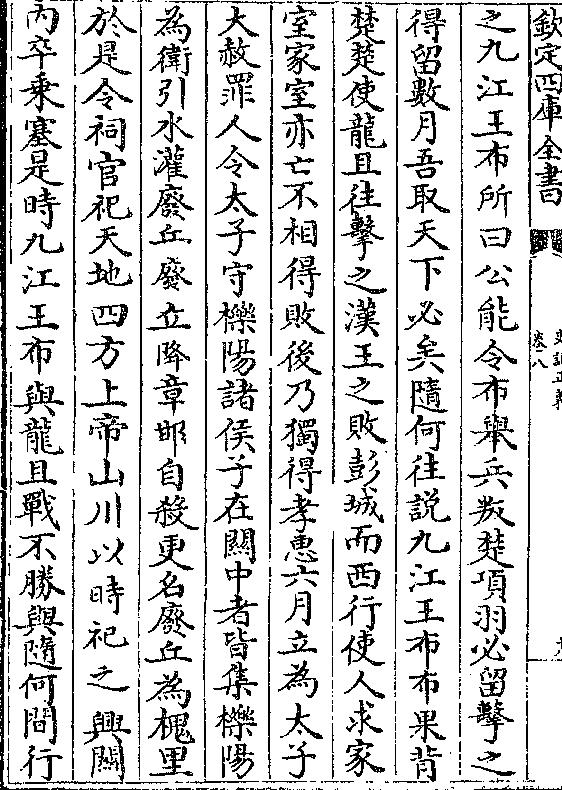 欽定四庫全書
卷八
之九江王布所曰公能令布舉兵叛楚項羽必留擊之
得留數月吾取天下必矣隨何往説九江王布布果背
楚楚使龍且往擊之漢王之敗彭城而西行使人求家
室家室亦亡不相得敗後乃獨得孝惠六月立為太子
大赦罪人令太子守櫟陽諸侯子在關中者皆集櫟陽
為衛引水灌廢丘廢丘降章邯自殺更名廢丘為槐里
於是令祠官祀天地四方上帝山川以時祀之興關
内卒乗塞是時九江王布與龍且戰不勝與隨何間行